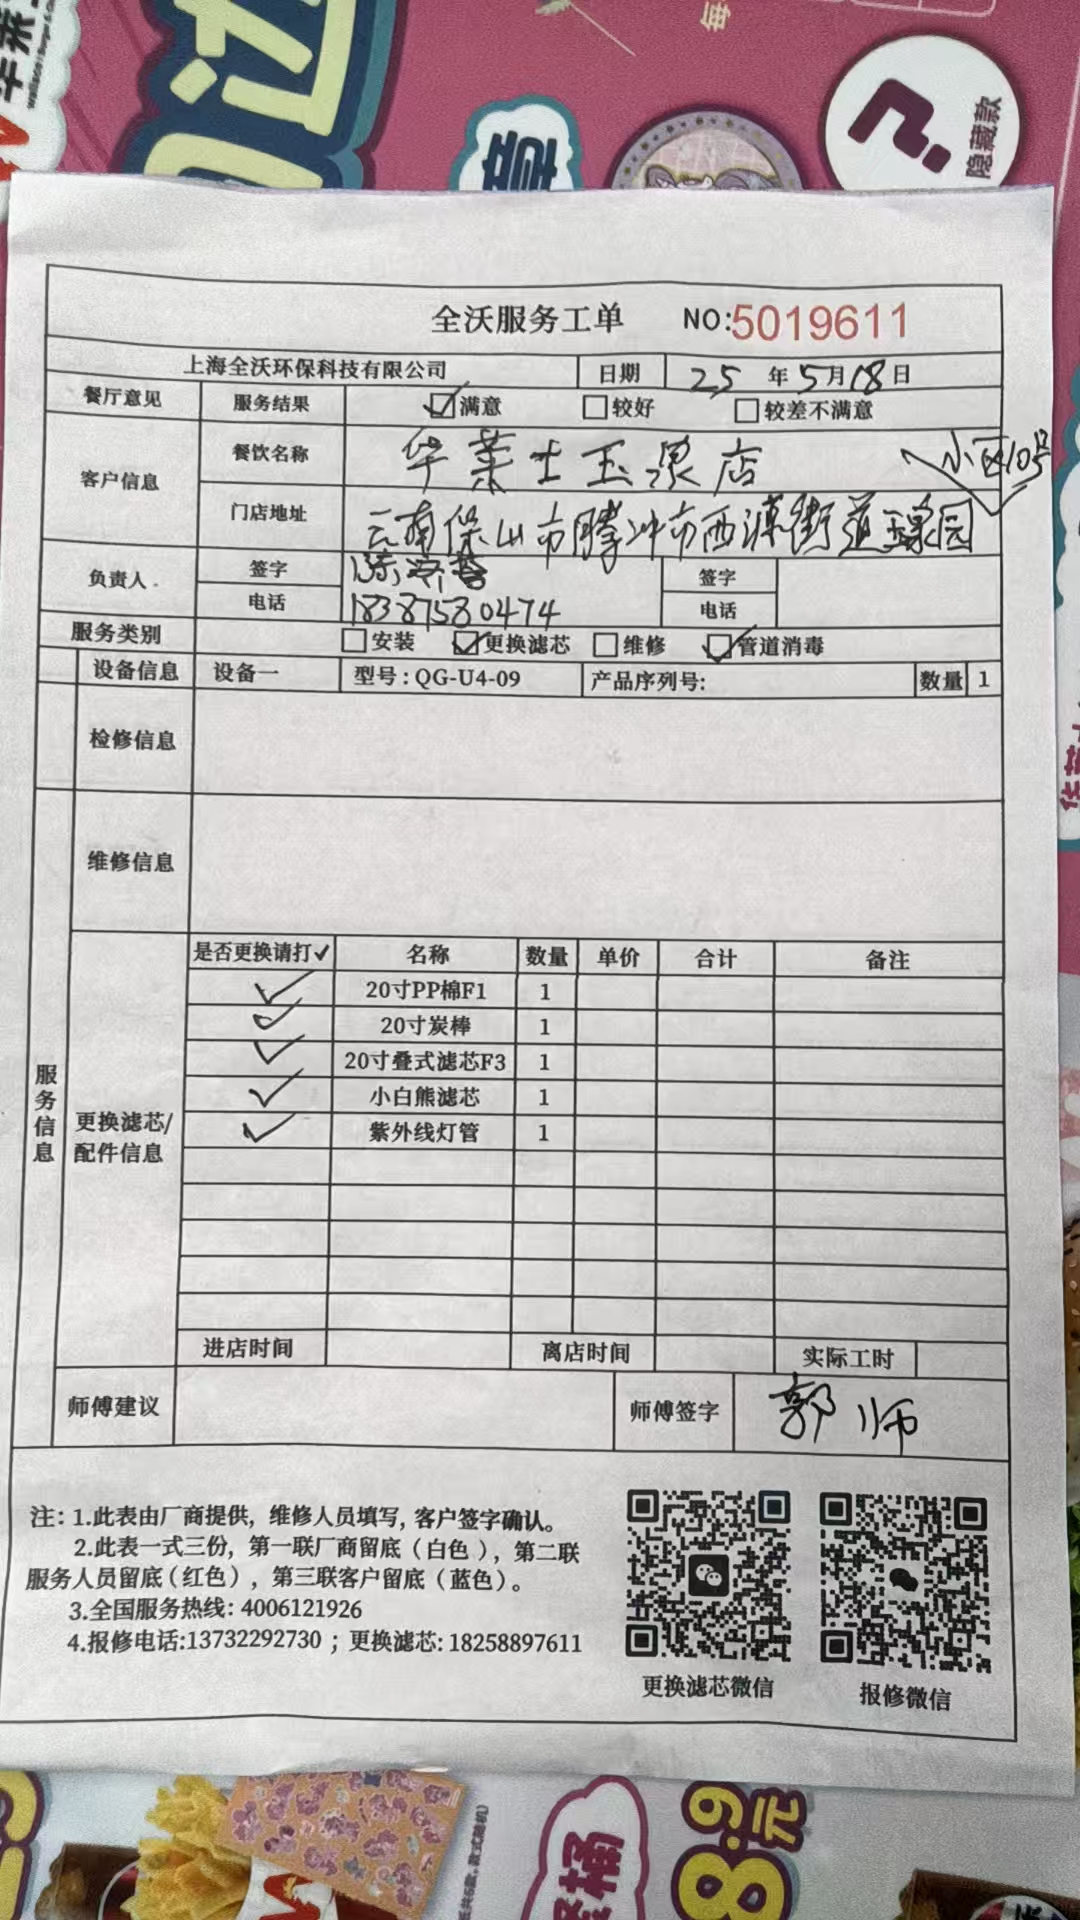 每
章
隐藏款
全沃服务工单 NO:5019611
上海全沃环保科技有限公司 日期 25 年 5 月 18 日
餐厅意见 服务结果 满意 较好 较差不满意
客户信息 餐饮名称 华莱士玉泉店
小区10号
门店地址 云南保山市腾冲市西源街道玉泉园
负责人 签字 陈 签字
电话 18387580474 电话
服务类别 安装 更换滤芯 维修 管道消毒
设备信息 设备一 型号:QG-U4-09 产品序列号: 数量 1
检修信息
维修信息
服务信息
更换滤芯/配件信息
是否更换请打✓ 名称 数量 单价 合计 备注
✓ 20寸PP棉F1 1
✓ 20寸炭棒 1
✓ 20寸叠式滤芯F3 1
✓ 小白熊滤芯 1
✓ 紫外线灯管 1
进店时间 离店时间 实际工时
师傅建议 师傅签字 郭师
注: 1.此表由厂商提供, 维修人员填写, 客户签字确认。
2.此表一式三份, 第一联厂商留底(白色), 第二联
服务人员留底(红色), 第三联客户留底(蓝色)。
3.全国服务热线: 4006121926
4.报修电话:13732292730 ; 更换滤芯: 18258897611
更换滤芯微信 报修微信
8.9元
桶